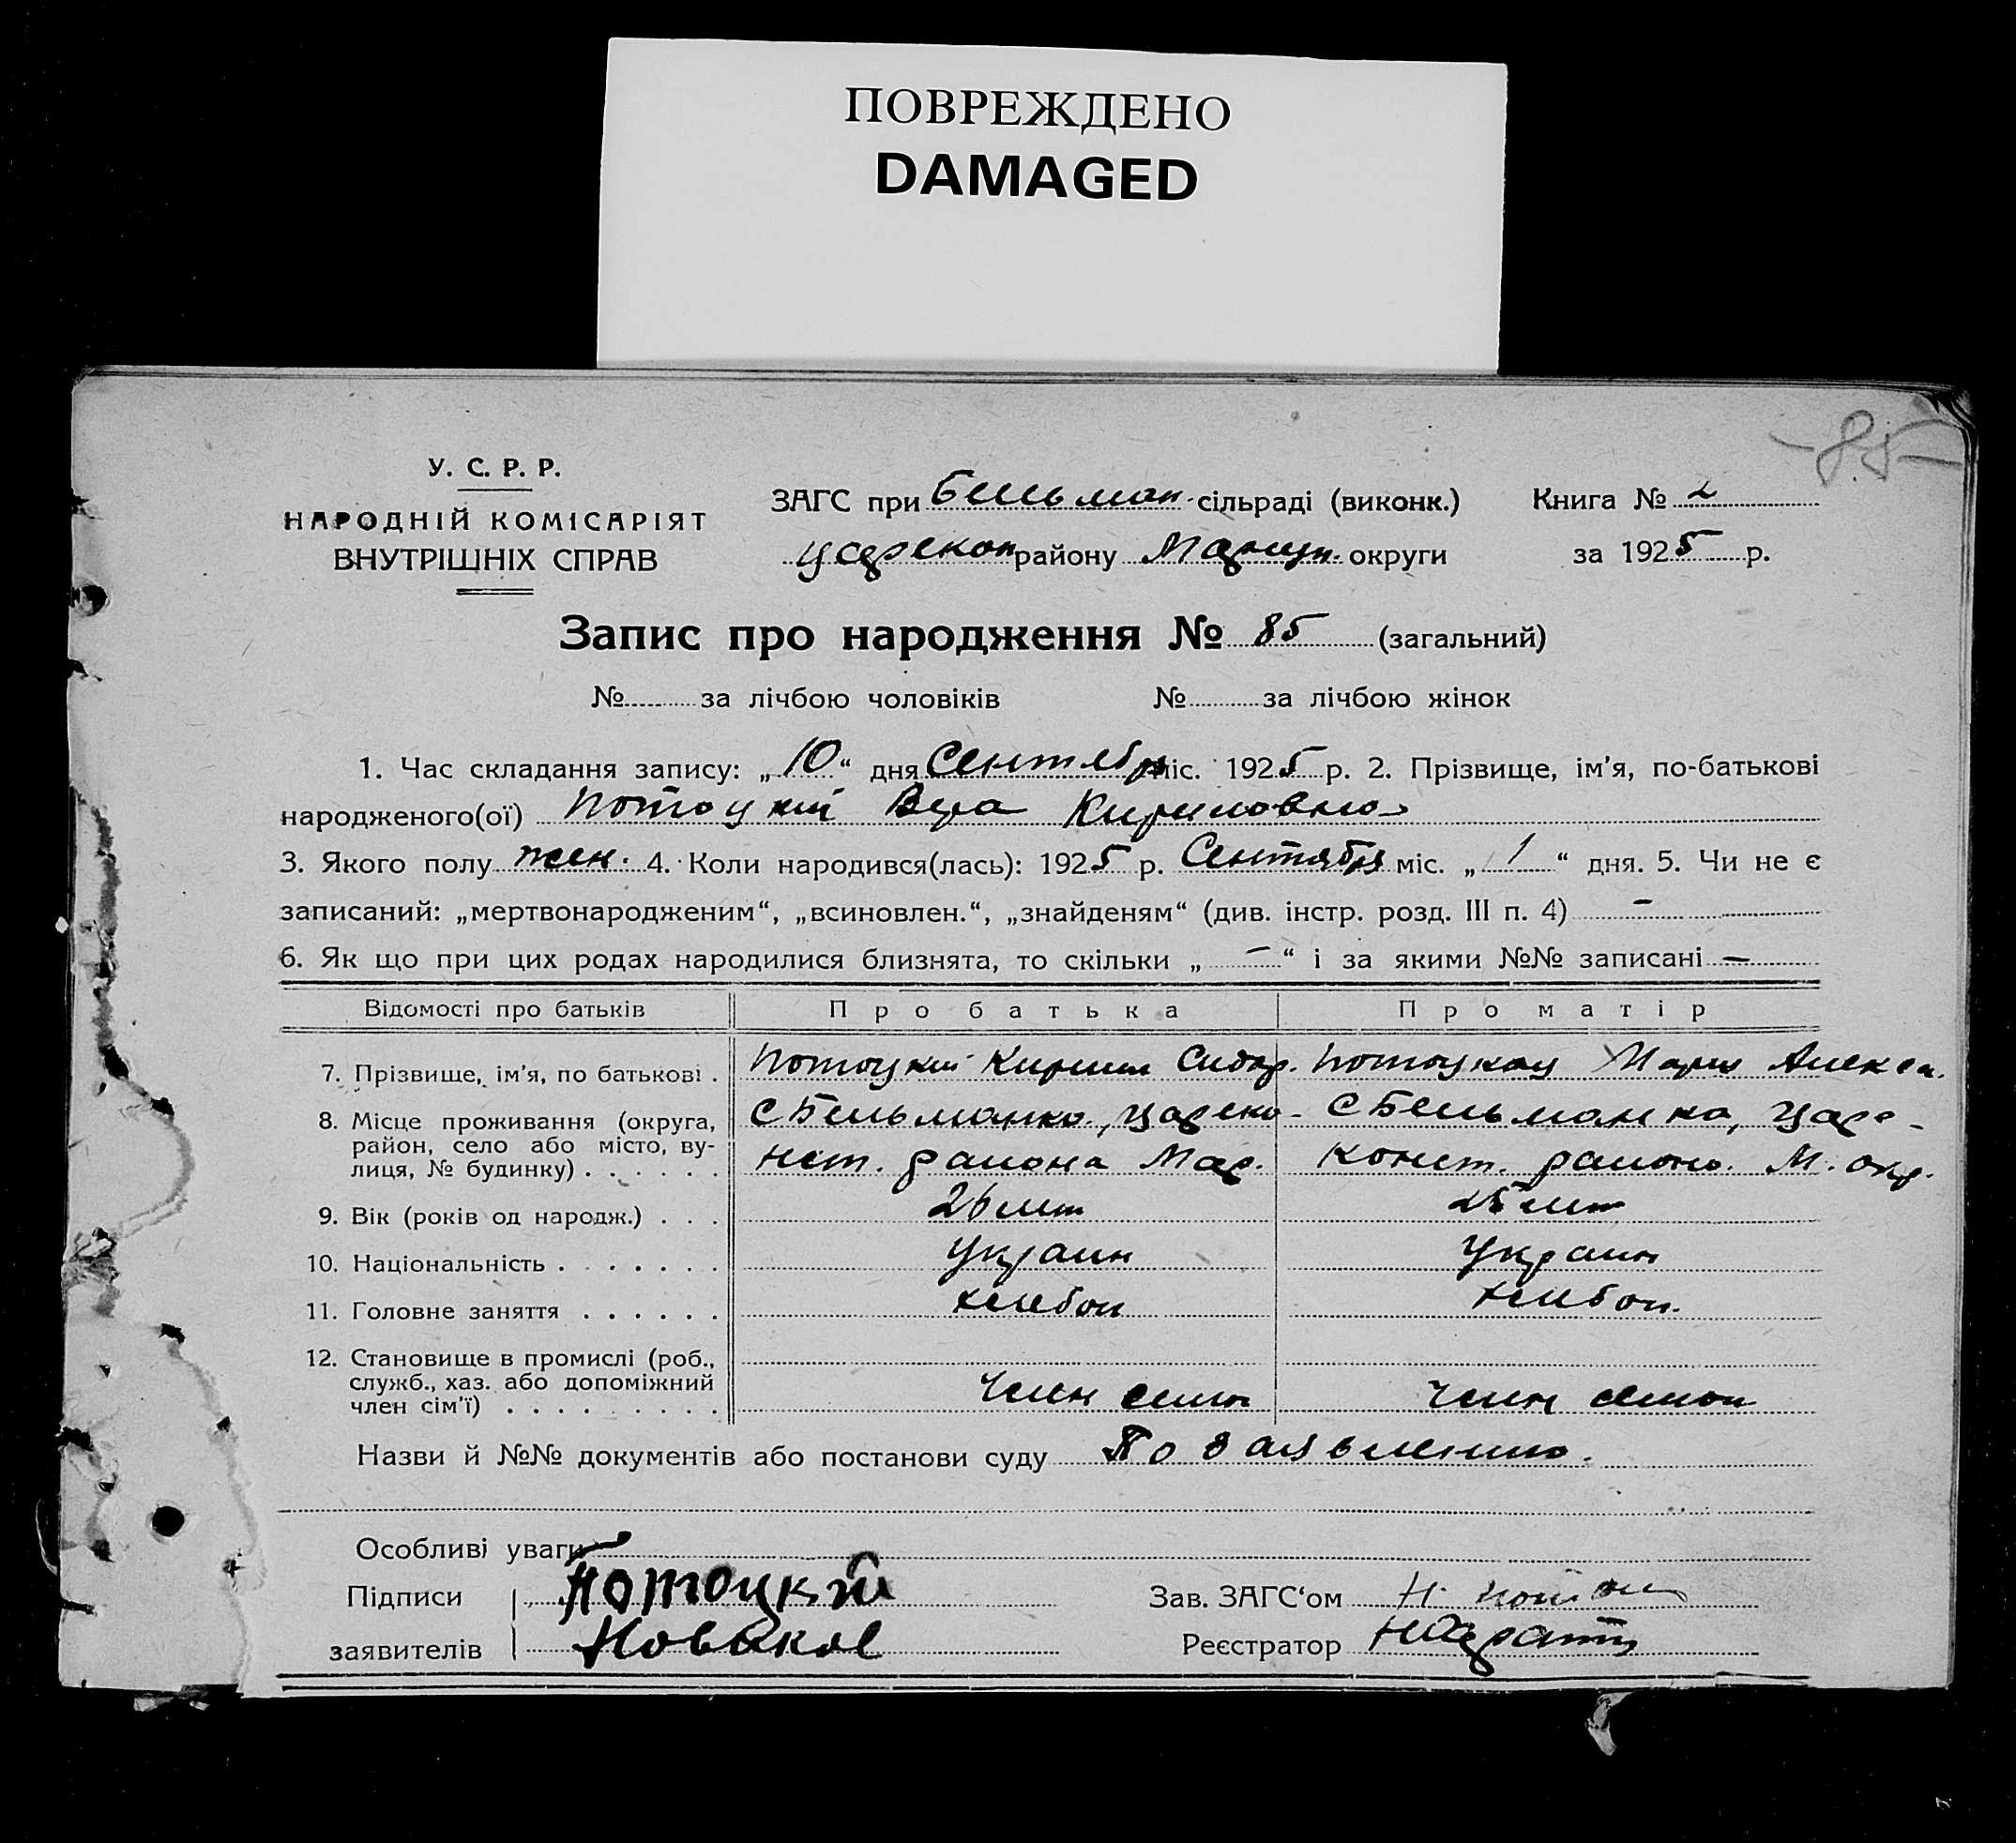 ПОВРЕЖДЕНО
DAMAGED
-85-
У. С. Р. Р.
НАРОДНІЙ КОМІСАРІЯТ
ВНУТРІШНІХ СПРАВ
ЗАГС при Бельман. сільраді (виконк.) Книга № 2
Царекон району Мариуп. округи за 1925 р.
Запис про народження № 85 (загальний)
№ за лічбою чоловіків № за лічбою жінок
1. Час складання запису: „10“ дня Сентября міс. 1925 р. 2. Прізвище, ім’я, по-батькові
народженого(ої) Потоцкий Вера Кириловна
3. Якого полу жен. 4. Коли народився(лась): 1925 р. Сентября міс. „1“ дня. 5. Чи не є
записаний: „мертвонародженим“, „всиновлен.“, „знайденям“ (див. інстр. розд. III п. 4) -
6. Як що при цих родах народилися близнята, то скільки „-“ і за якими №№ записані -
Відомості про батьків Про батька Про матір
7. Прізвище, ім’я, по батькові . Потоцкий Кирилл Сидор. Потоцкая Мария Алекса.
8. Місце проживання (округа, район, село або місто, вулиця, № будинку) . . . . . . С Бельманка, Царско- С Бельманка, Царе-
нст. района Мар. Конст. района. М. окр.
9. Вік (років од народж.) . . . 26 лет 25 лет
10. Національність . . . . . . . Украин Украин
11. Головне заняття . . . . . . хлебоп хлебоп.
12. Становище в промислі (роб.,
служб., хаз. або допоміжний
член сім’ї) . . . . . . . . . Член семьи Член семьи
Назви й №№ документів або постанови суду По заявлению.
Особливі уваги
Підписи Потоцкий Зав. ЗАГС‘ом Н.
заявителів Новаков Реєстратор